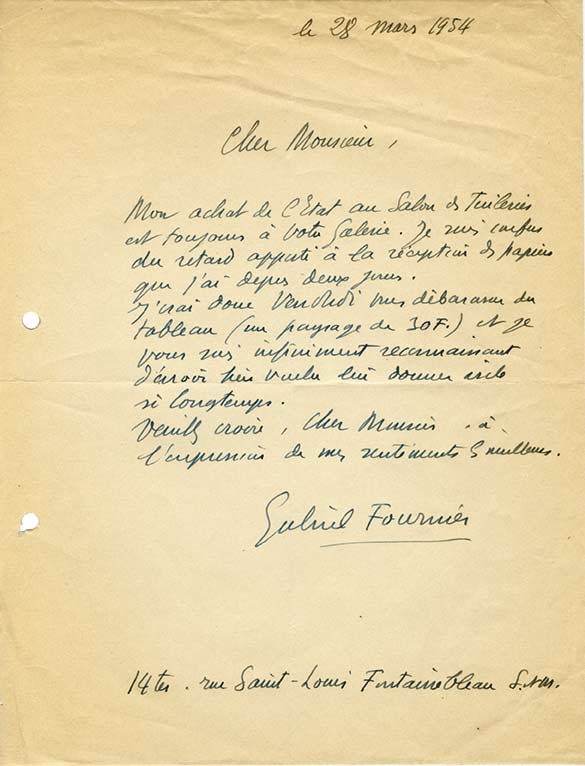 le 28 mars 1954
Cher Monsieur,
Mon achat de l'Etat au Salon des Tuileries
est toujours à votre Galerie. Je suis confus
du retard apporté à la réception des papiers
que j'ai depuis deux jours.
J'irai donc Vendredi vous débarasser du
tableau (un paysage de 30F.) et je
vous suis infiniment reconnaissant
d'avoir bien voulu lui donner asile
si longtemps.
Veuillez croire, Cher Monsieur, à
l'expression de mes sentiments les meilleurs.
Gabriel Fournier
14ter. rue Saint-Louis Fontainebleau S.&M.